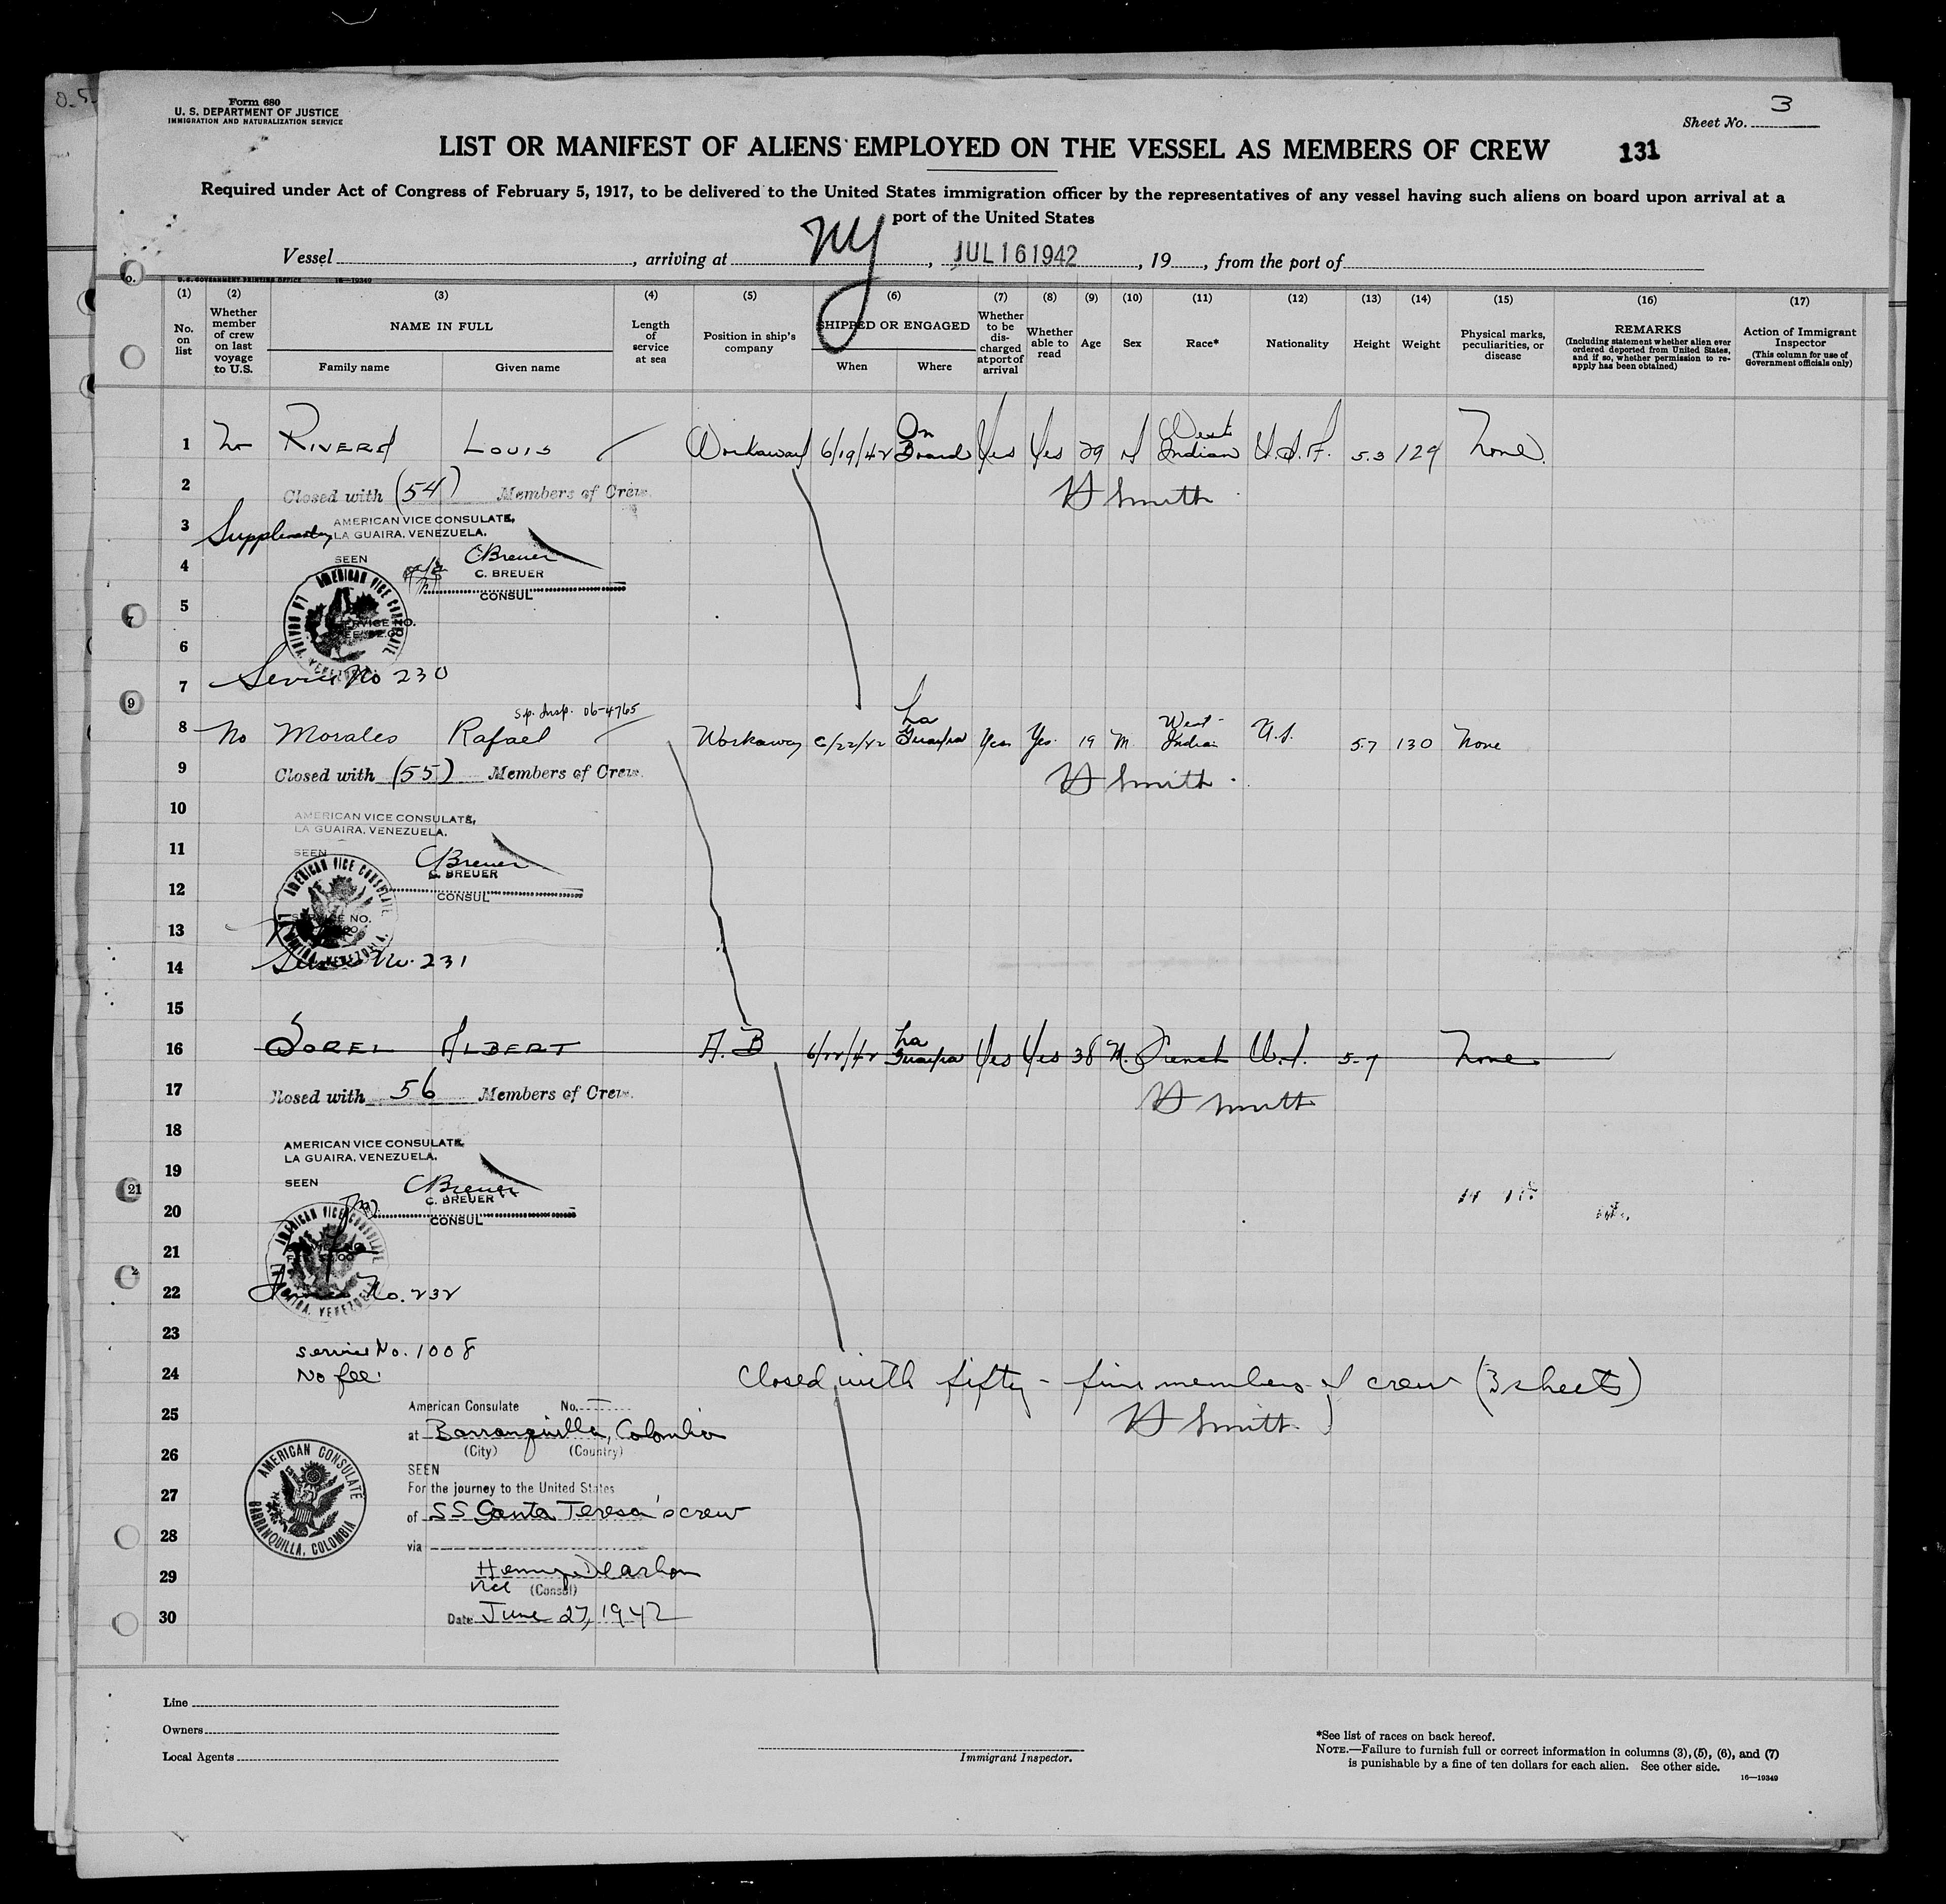 Form 680
U. S. DEPARTMENT OF JUSTICE
IMMIGRATION AND NATURALIZATION SERVICE
Sheet No. 3
LIST OR MANIFEST OF ALIENS EMPLOYED ON THE VESSEL AS MEMBERS OF CREW 131
Required under Act of Congress of February 5, 1917, to be delivered to the United States immigration officer by the representatives of any vessel having such aliens on board upon arrival at a
port of the United States
Vessel , arriving at NY , JUL 16 1942 , 19 , from the port of
U. S. GOVERNMENT PRINTING OFFICE 16—19349
(1) (2) (3) (4) (5) (6) (7) (8) (9) (10) (11) (12) (13) (14) (15) (16) (17)
No. on list
Whether member of crew on last voyage to U.S.
NAME IN FULL
Family name Given name
Length of service at sea
Position in ship's company
SHIPPED OR ENGAGED
When Where
Whether to be discharged at port of arrival
Whether able to read
Age
Sex
Race*
Nationality
Height
Weight
Physical marks, peculiarities, or disease
REMARKS
(Including statement whether alien ever ordered deported from United States, and if so, whether permission to reapply has been obtained)
Action of Immigrant Inspector
(This column for use of Government officials only)
1 No RIVERA LOUIS Workaway 6/19/42 On Board Yes Yes 29 M West Indian U.S.A. 5.3 129 None
2 Closed with (54) Members of Crew. H Smith
3 Supplementary AMERICAN VICE CONSULATE,
LA GUAIRA, VENEZUELA.
4 SEEN C Breuer
C. BREUER
CONSUL
5
AMERICAN VICE CONSULATE LA GUAIRA, VENEZUELA
SERVICE NO.
6
7 Service No 230
Sp. Insp. 06-4765
8 No Morales Rafael Workaway 6/22/42 La Guaira Yes Yes 19 M West-Indian U.S. 5.7 130 None
9 Closed with (55) Members of Crew. H Smith
10 AMERICAN VICE CONSULATE,
LA GUAIRA, VENEZUELA.
11 SEEN C Breuer
C. BREUER
12 CONSUL
AMERICAN VICE CONSULATE LA GUAIRA, VENEZUELA
SERVICE NO.
13
14 Service No. 231
15
16 SOREL ALBERT A.B 6/22/42 La Guaira Yes Yes 38 M. French U.S. 5-7 None
17 Closed with 56 Members of Crew. H Smith
18 AMERICAN VICE CONSULATE,
LA GUAIRA, VENEZUELA.
19 SEEN C Breuer
C. BREUER
20 CONSUL
AMERICAN VICE CONSULATE LA GUAIRA, VENEZUELA
21
22 Service No. 232
23 Service No. 1008
24 No fee. Closed with fifty-five members of crew (3 sheets)
H Smith
25 American Consulate No.
at Barranquilla, Colombia
26 (City) (Country)
SEEN
27 For the journey to the United States
of SS Santa Teresa's crew
28 via
AMERICAN CONSULATE BARRANQUILLA, COLOMBIA
29 Henry Dearborn
Vice (Consul)
30 Date June 27, 1942
Line
Owners
Local Agents
Immigrant Inspector.
*See list of races on back hereof.
NOTE.—Failure to furnish full or correct information in columns (3), (5), (6), and (7)
is punishable by a fine of ten dollars for each alien. See other side.
16—19349